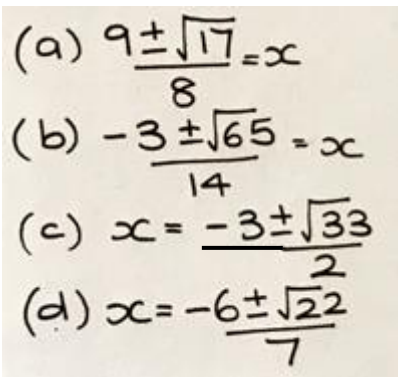 (a) 9±√17 = x
8
(b) -3±√65 = x
14
(c) x = -3±√33
2
(d) x = -6±√22
7